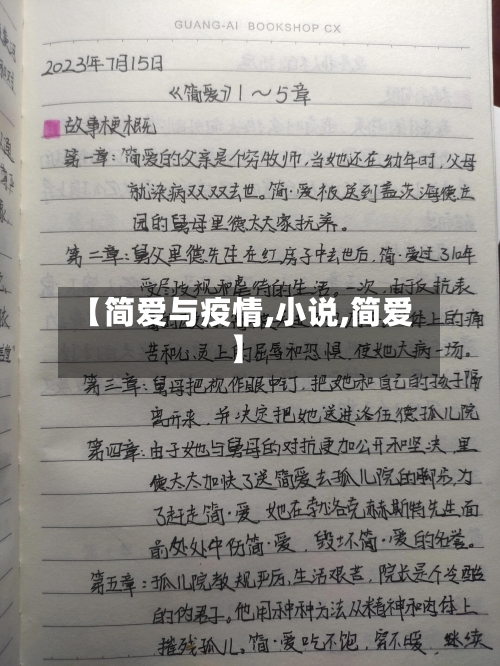 GUANG-AI BOOKSHOP CX
2023年7月15日
《简爱》1～5章
故事梗概
第一章：简爱的父亲是个穷牧师，当她还在幼年时，父母
就染病双双去世。简·爱被送到盖茨海德庄
园的舅母里德太太家抚养。
第二章：舅父里德先生在红房子中去世后，简·爱过了10年
受尽歧视和虐待的生活。一次，由于反抗表
【简爱与疫情,小说,简爱
】
上的痛
苦和心灵上的屈辱和恐惧，使她大病一场。
第三章：舅母把视作眼中钉，把她和自己的孩子隔
离开来，并决定把她送进洛伍德孤儿院
第四章：由于她与舅母的对抗更加公开和坚决，里
德太太加快了送简爱去孤儿院的脚步，为
了赶走简·爱，她在勃洛克赫斯特先生面
前处处中伤简·爱，毁坏简·爱的名誉。
第五章：孤儿院教规严厉，生活艰苦，院长是个冷酷
的伪君子。他用种种方法从精神和肉体上
摧残孤儿。简·爱吃不饱，穿不暖，继续